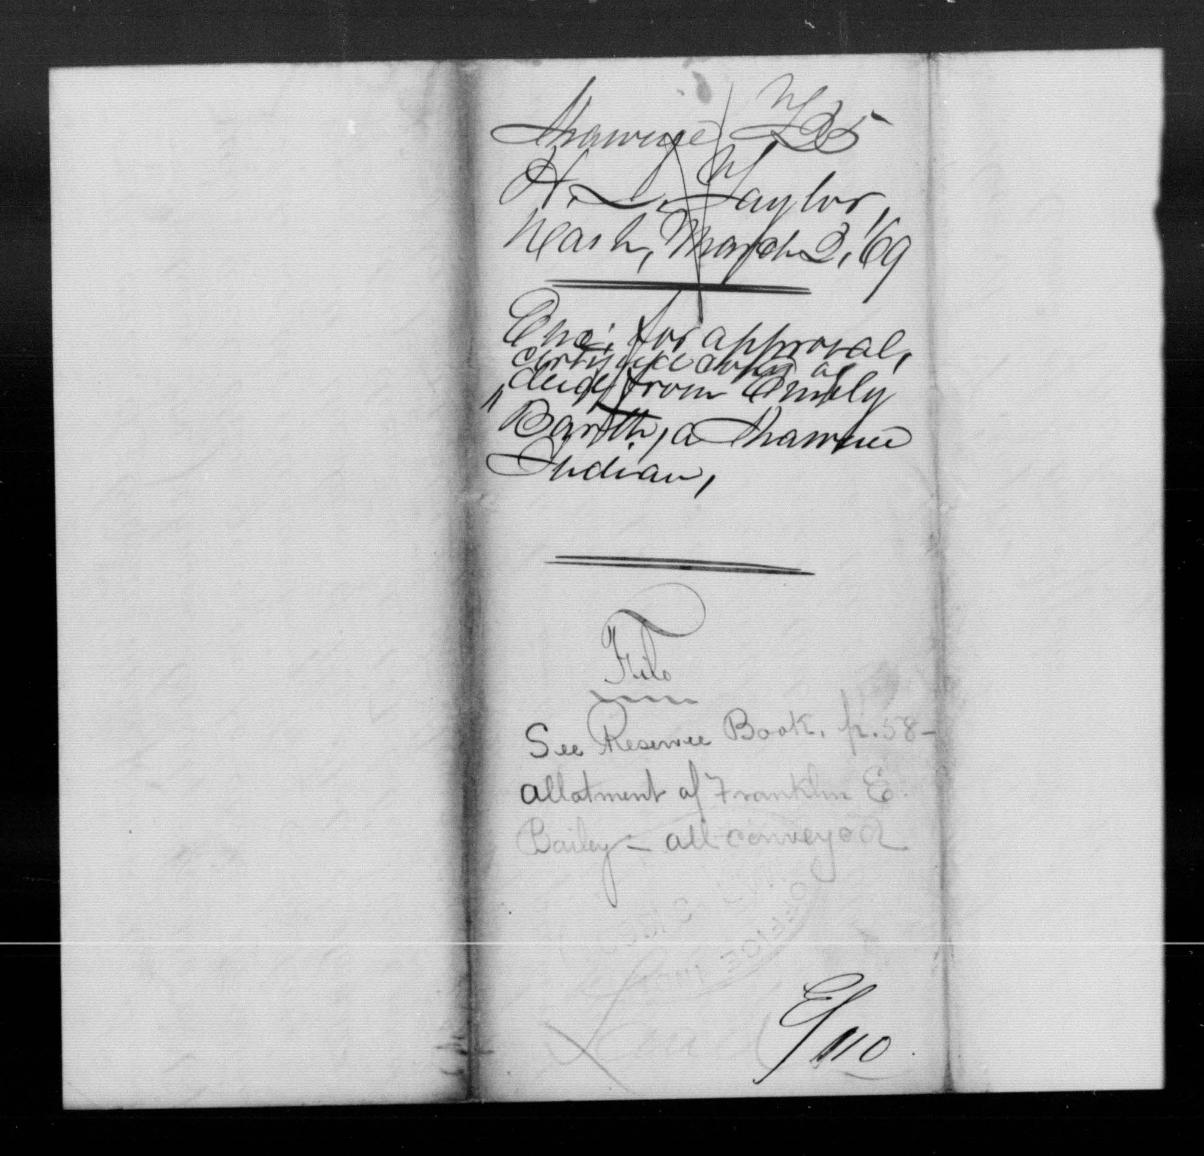 Shawnee T 35
H. L. Taylor,
Wash, March 2, '69
Enc: for approval,
certified copy of
deed from Emily
Barth, a Shawnee
Indian,
File
See Reserve Book, p. 58 –
allotment of Franklin E.
Bailey – all conveyed
OFFICE
Land
E/110